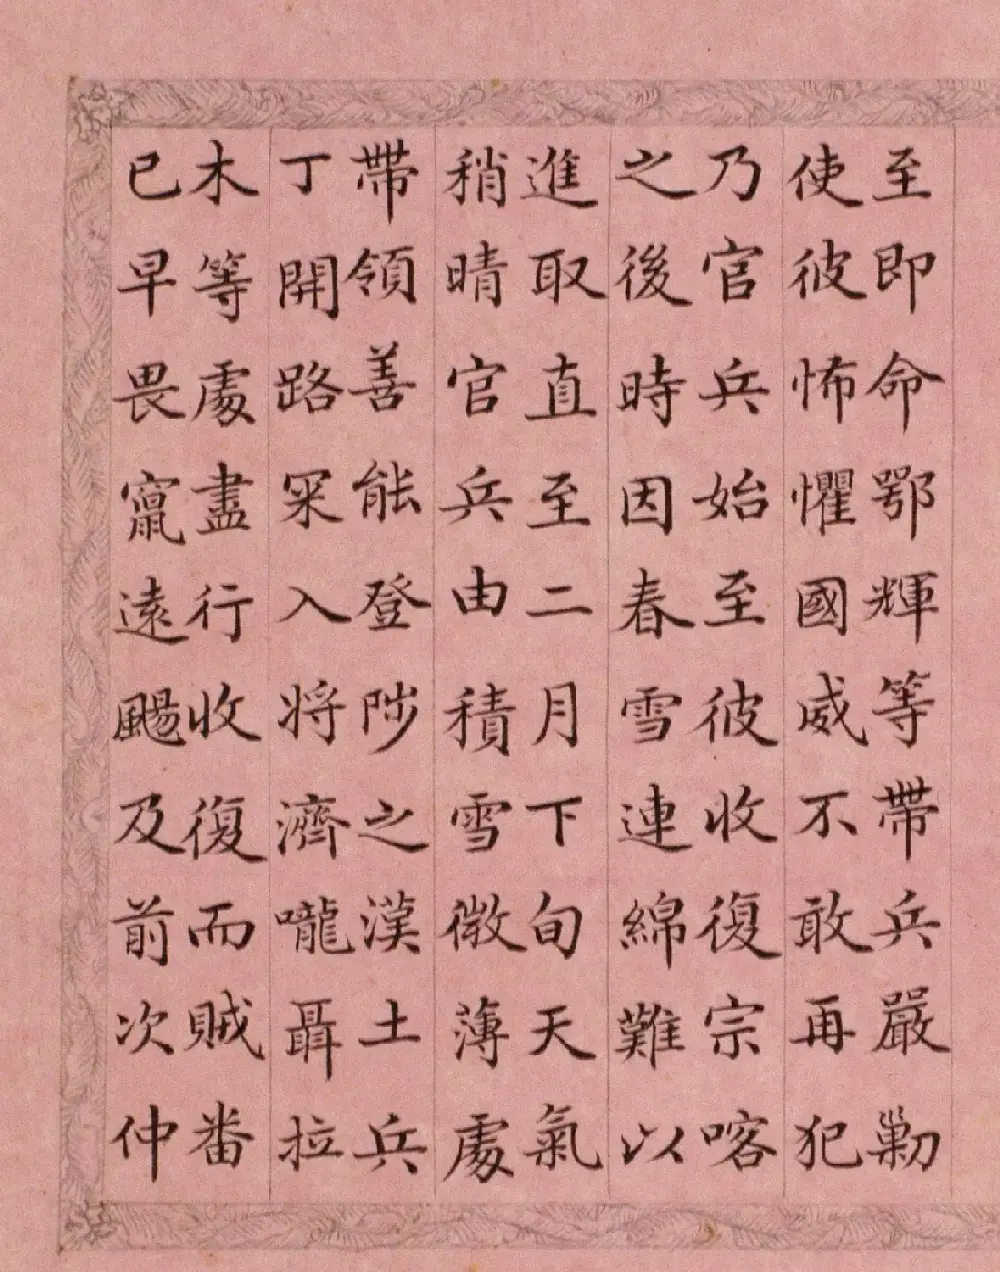 至即命鄂輝等帶兵嚴勦
使彼怖懼國威不敢再犯
乃官兵始至彼收復宗喀
之後時因春雪連綿難以
進取直至二月下旬天氣
稍晴官兵由積雪微薄處
帶領善能登陟之漢土兵
丁開路罙入將濟嚨聶拉
木等處盡行收復而賊番
已早畏竄遠颺及前次仲